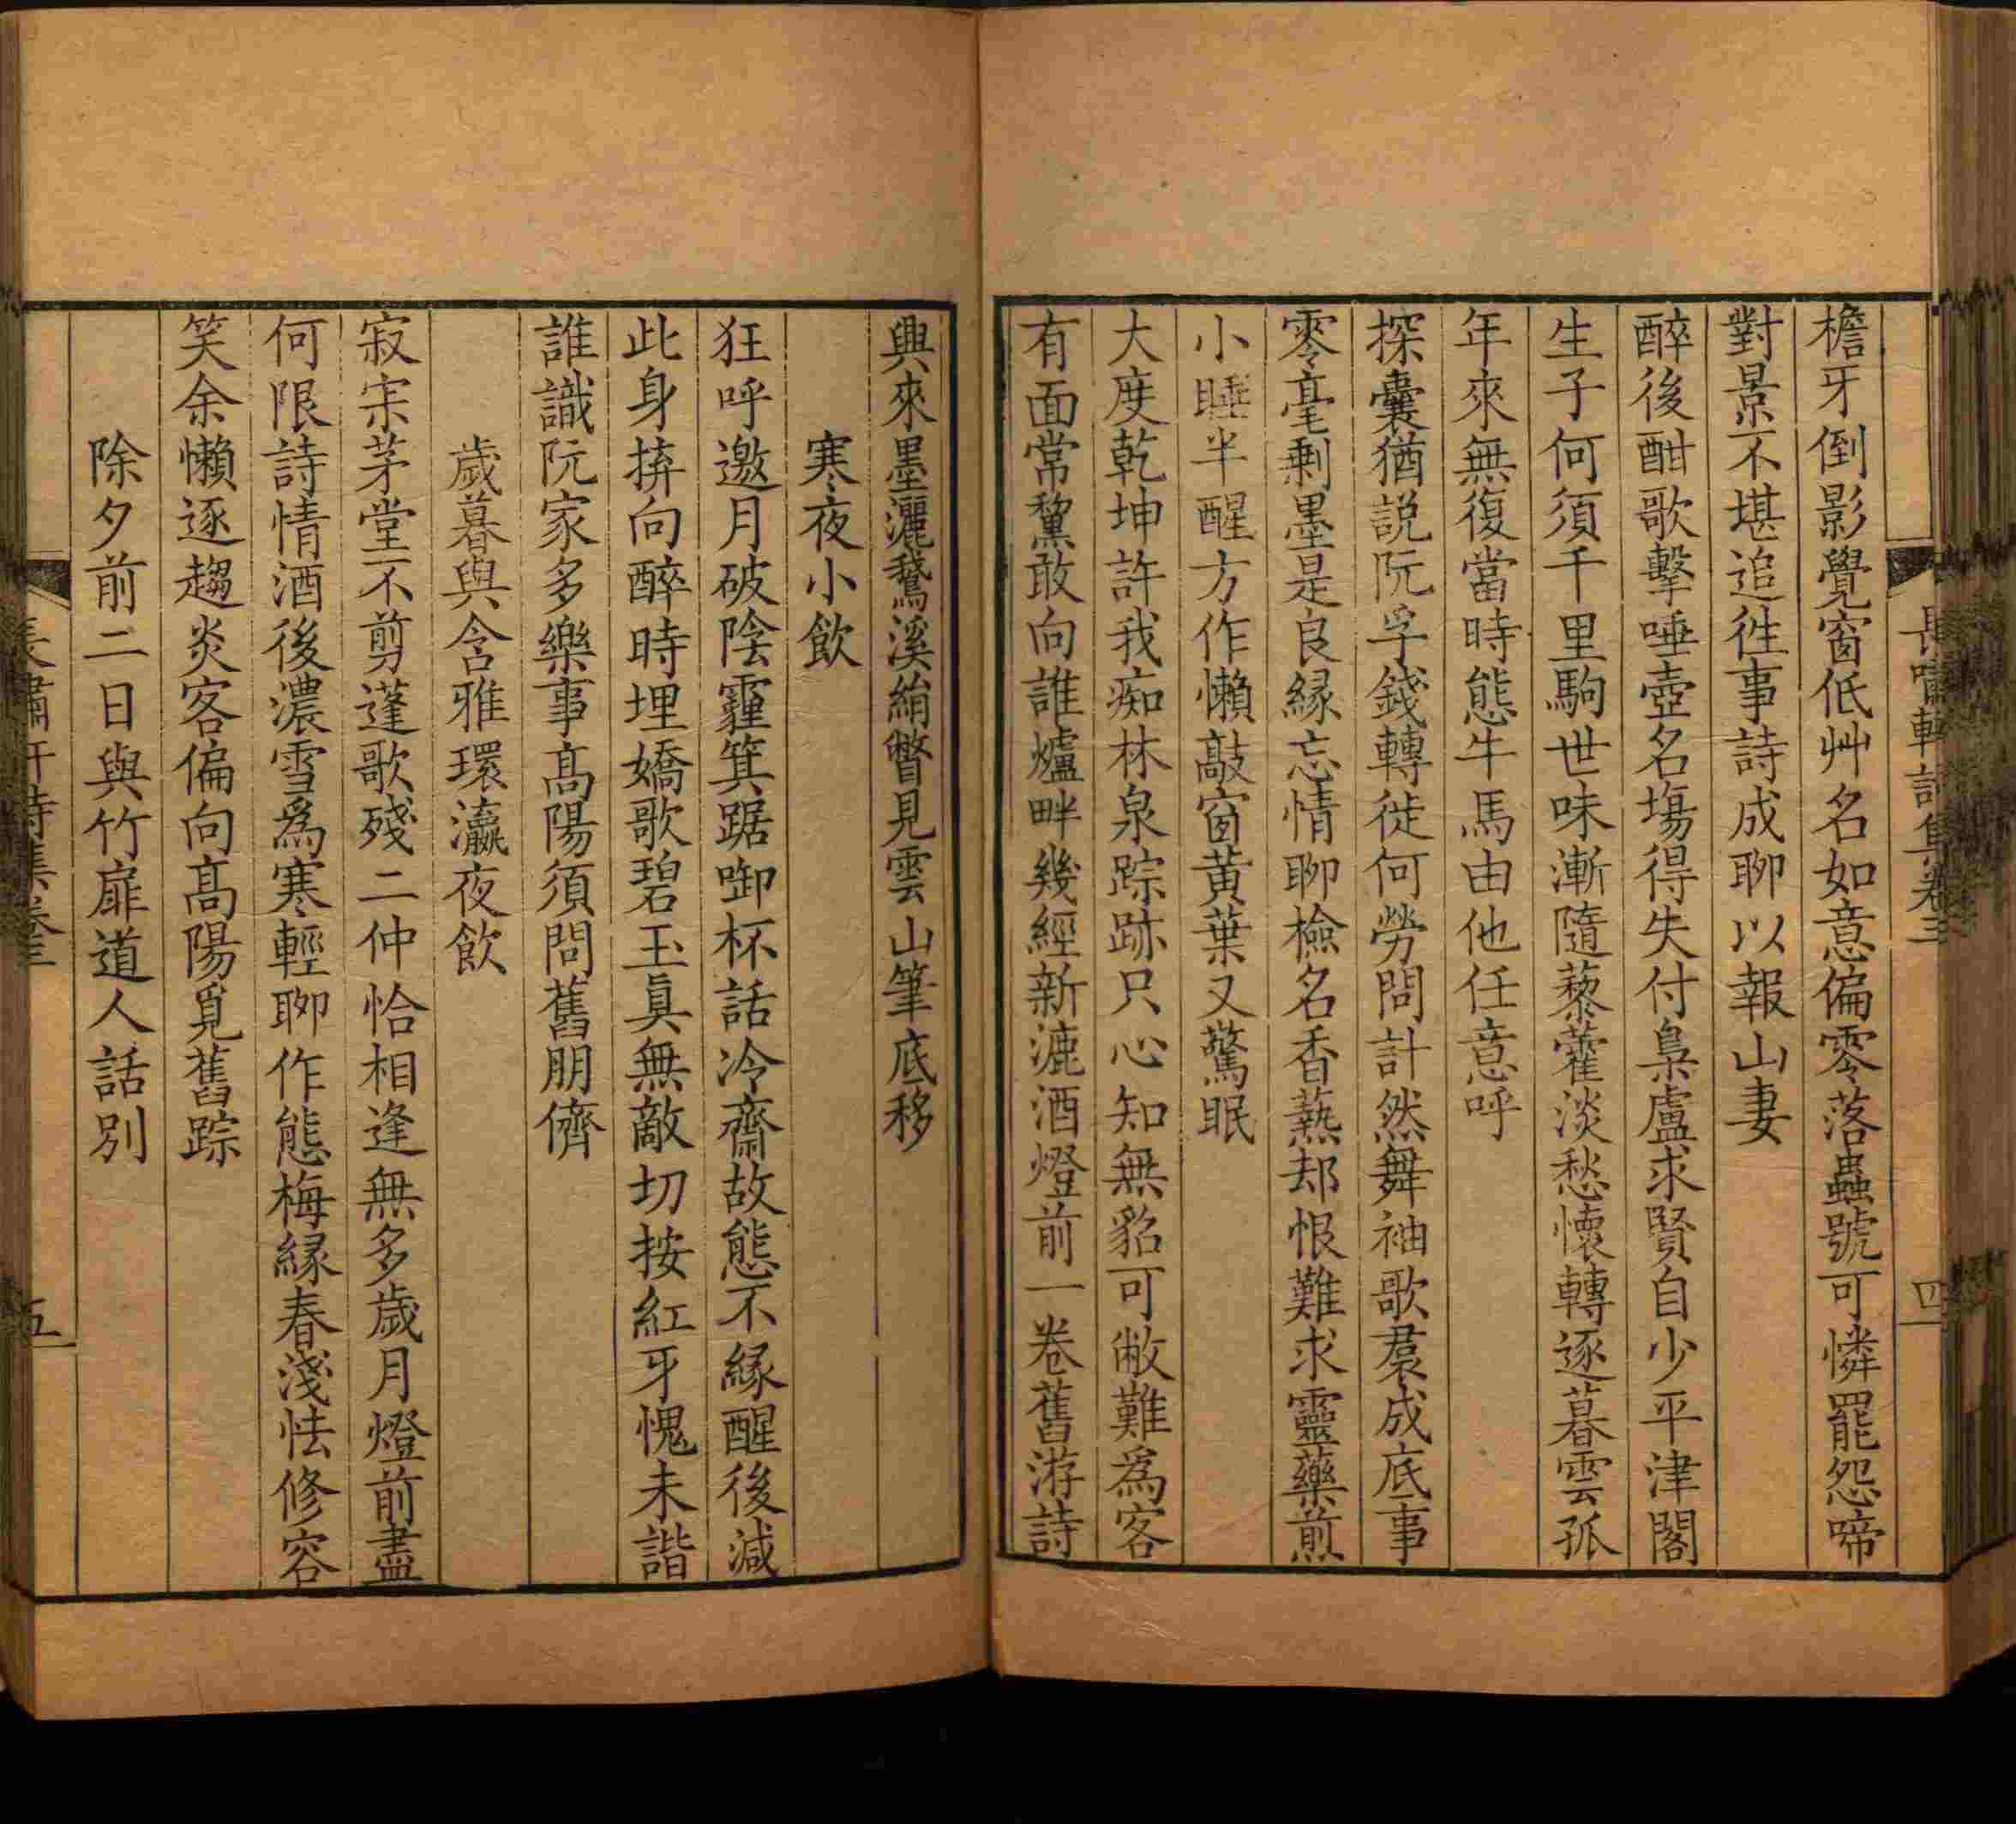 長嘯軒詩集卷三
四
檐牙倒影覺窗低艸名如意偏零落蟲號可憐罷怨啼
對景不堪追徃事詩成聊以報山妻
醉後酣歌擊唾壺名塲得失付梟盧求賢自少平津閣
生子何須千里駒世味漸隨藜藿淡愁懷轉逐暮雲孤
年來無復當時態牛馬由他任意呼
探囊猶説阮孚錢轉徙何勞問計然舞袖歌裠成底事
零毫剩墨是良緣忘情聊檢名香爇却恨難求靈藥煎
小睡半醒方作懶敲窗黃葉又驚眠
大度乾坤許我痴林泉踪跡只心知無貂可敝難爲客
有面常黧敢向誰爐畔幾經新漉酒燈前一卷舊游詩
興來墨灑鵞溪絹瞥見雲山筆底移
寒夜小飲
狂呼邀月破陰霾箕踞啣杯話冷齋故態不緣醒後減
此身拚向醉時埋嬌歌碧玉眞無敵切按紅牙愧未諧
誰識阮家多樂事高陽須問舊朋儕
歲暮與含雅環瀛夜飲
寂宗茅堂不剪蓬歌殘二仲恰相逢無多歲月燈前盡
何限詩情酒後濃雪爲寒輕聊作態梅緣春淺怯修容
笑余懶逐趨炎客偏向高陽覓舊踪
除夕前二日與竹扉道人話別
長嘯軒詩集卷三
五